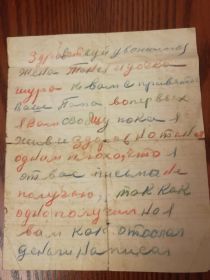 Здравствуй уважаемая
жена Таня и дочка
Шура к вам с приветом
ваш Папа во первых
я вам сообщу пока я
жив и здоров но Таня
одним плохо, что я
от вас письма не
получаю, так как
одно получил но я
вам как отослал
деньги написал